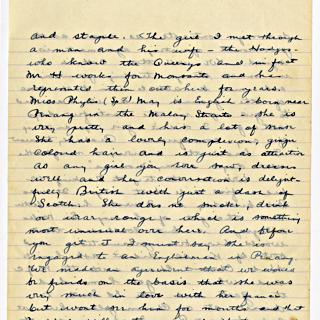 and staple. The girl I met through
a man and his wife - the Hodges -
who know the Queenys and in fact
Mr H works for Monsanto and has
represented them out here for years.
Miss Phyllis May is English born near
Penang in the Malay Straits. She is
very pretty and has a lot of man
She has a lovely complexion, ginger
colored hair and is just as attractive
as any girl you ever saw, dresses
well and her conversation is delight-
fully British with just a dash of
Scotch. She does no smoke, drink
or wear rouge - which is something
most unusual over here. And before
you get I must say she is
engaged to an Englishman in Penang
We made an agreement that we would
be friends on the basis that she was
very much in love with her fiance
but wont see him for months and that